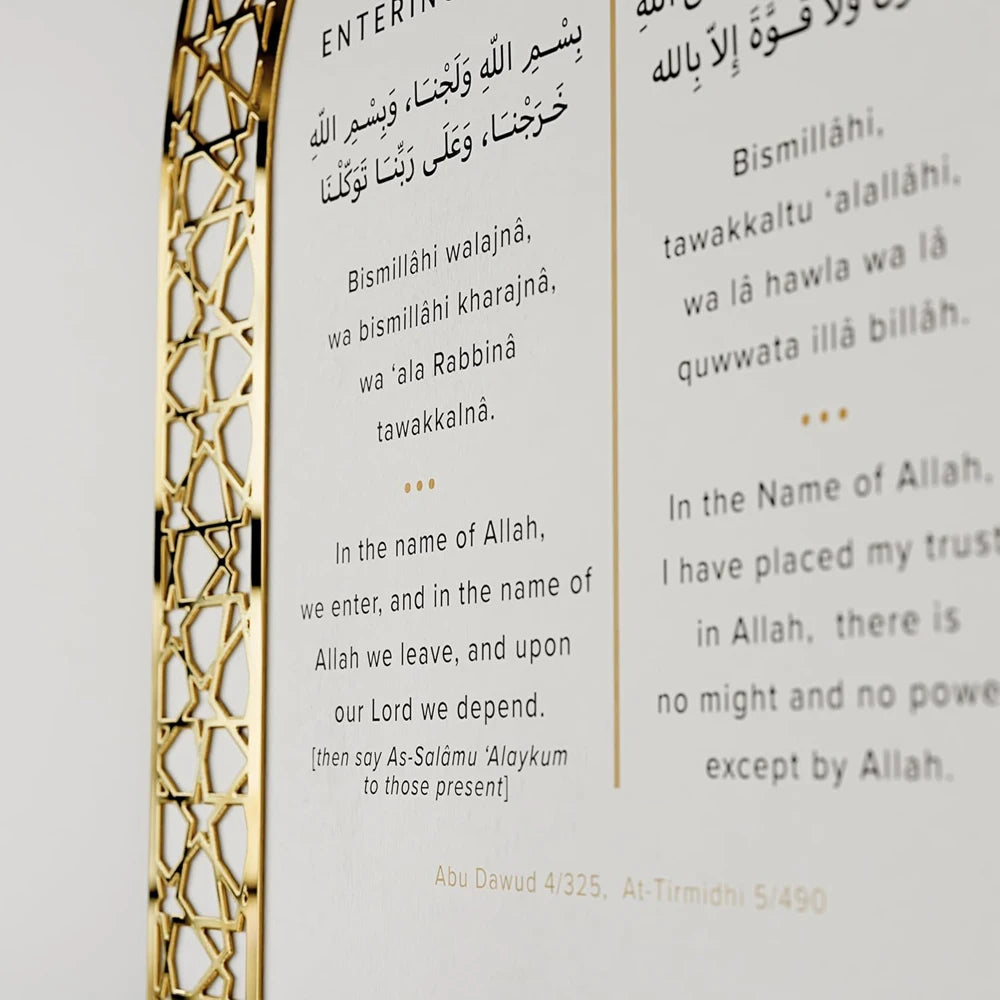 ENTERING
بِسْـمِ اللّهِ وَلَجْنـَا، وَبِسْـمِ اللّهِ
خَـرَجْنـَا، وَعَلَى رَبِّنـَا تَوَكّلْنَا
Bismillâhi walajnâ,
wa bismillâhi kharajnâ,
wa ‘ala Rabbinâ
tawakkalnâ.
In the name of Allah,
we enter, and in the name of
Allah we leave, and upon
our Lord we depend.
[then say As-Salâmu ‘Alaykum
to those present]
اللهِ
وَلا قُـوَّةَ إِلاّ بِالله
Bismillâhi,
tawakkaltu ‘alallâhi,
wa lâ hawla wa lâ
quwwata illâ billâh.
In the Name of Allah,
I have placed my trust
in Allah, there is
no might and no powe
except by Allah.
Abu Dawud 4/325, At-Tirmidhi 5/490